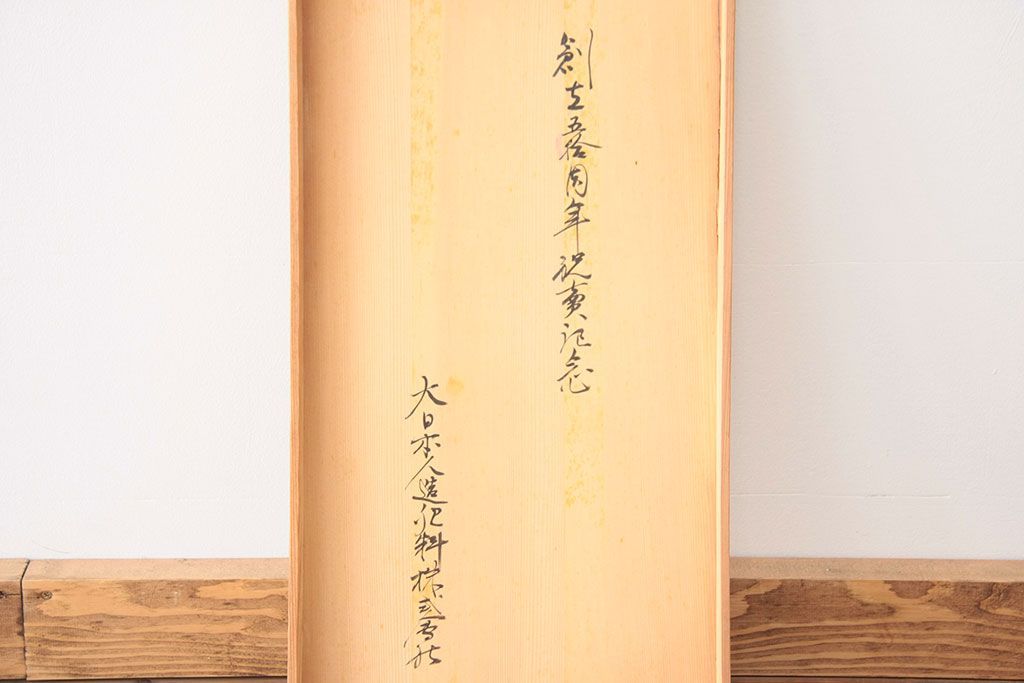 創立五拾周年祝賀記念
大日本人造肥料株式會社